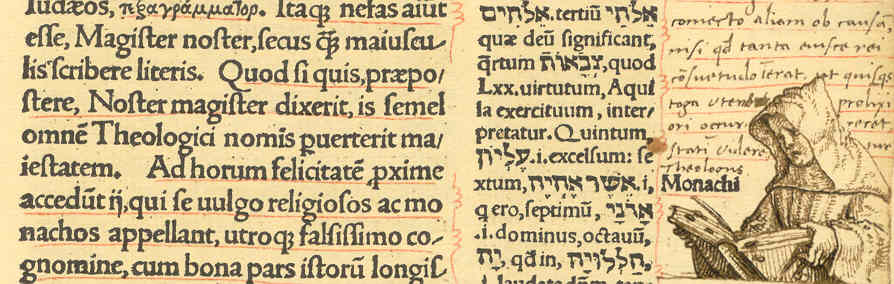 Iudæos, τετραγράμματον. Itaq; nefas aiūt
esse, Magister noster, secus q̄ȝ maiuscu-
lis scribere literis. Quod si quis, præpo/
stere, Noster magister dixerit, is semel
omnē Theologici nomīs puerterit ma/
iestatem. Ad horum felicitatē ꝓxime
accedūt ij, qui se uulgo religiosos ac mo
nachos appellant, utroq; falsissimo co-
gnomine, cum bona pars istorū longis-
אלהים. tertiū אלהי
quæ deū significant,
q̄rtum צבאות, quod
Lxx, uirtutum, Aqui
la exercituum, inter/
pretatur. Quintum
עליון .i. excelsum: se
xtum, אשר אהיה .i,
q ero, septimū, אדני
.i. dominus, octauū,
יה, qd in, הללויה,
aliam ob causa,
nisi qd tanta eiusce rei
cōsuetudo erat, ut
toga
ori occur
videre
Theologis
Monachi